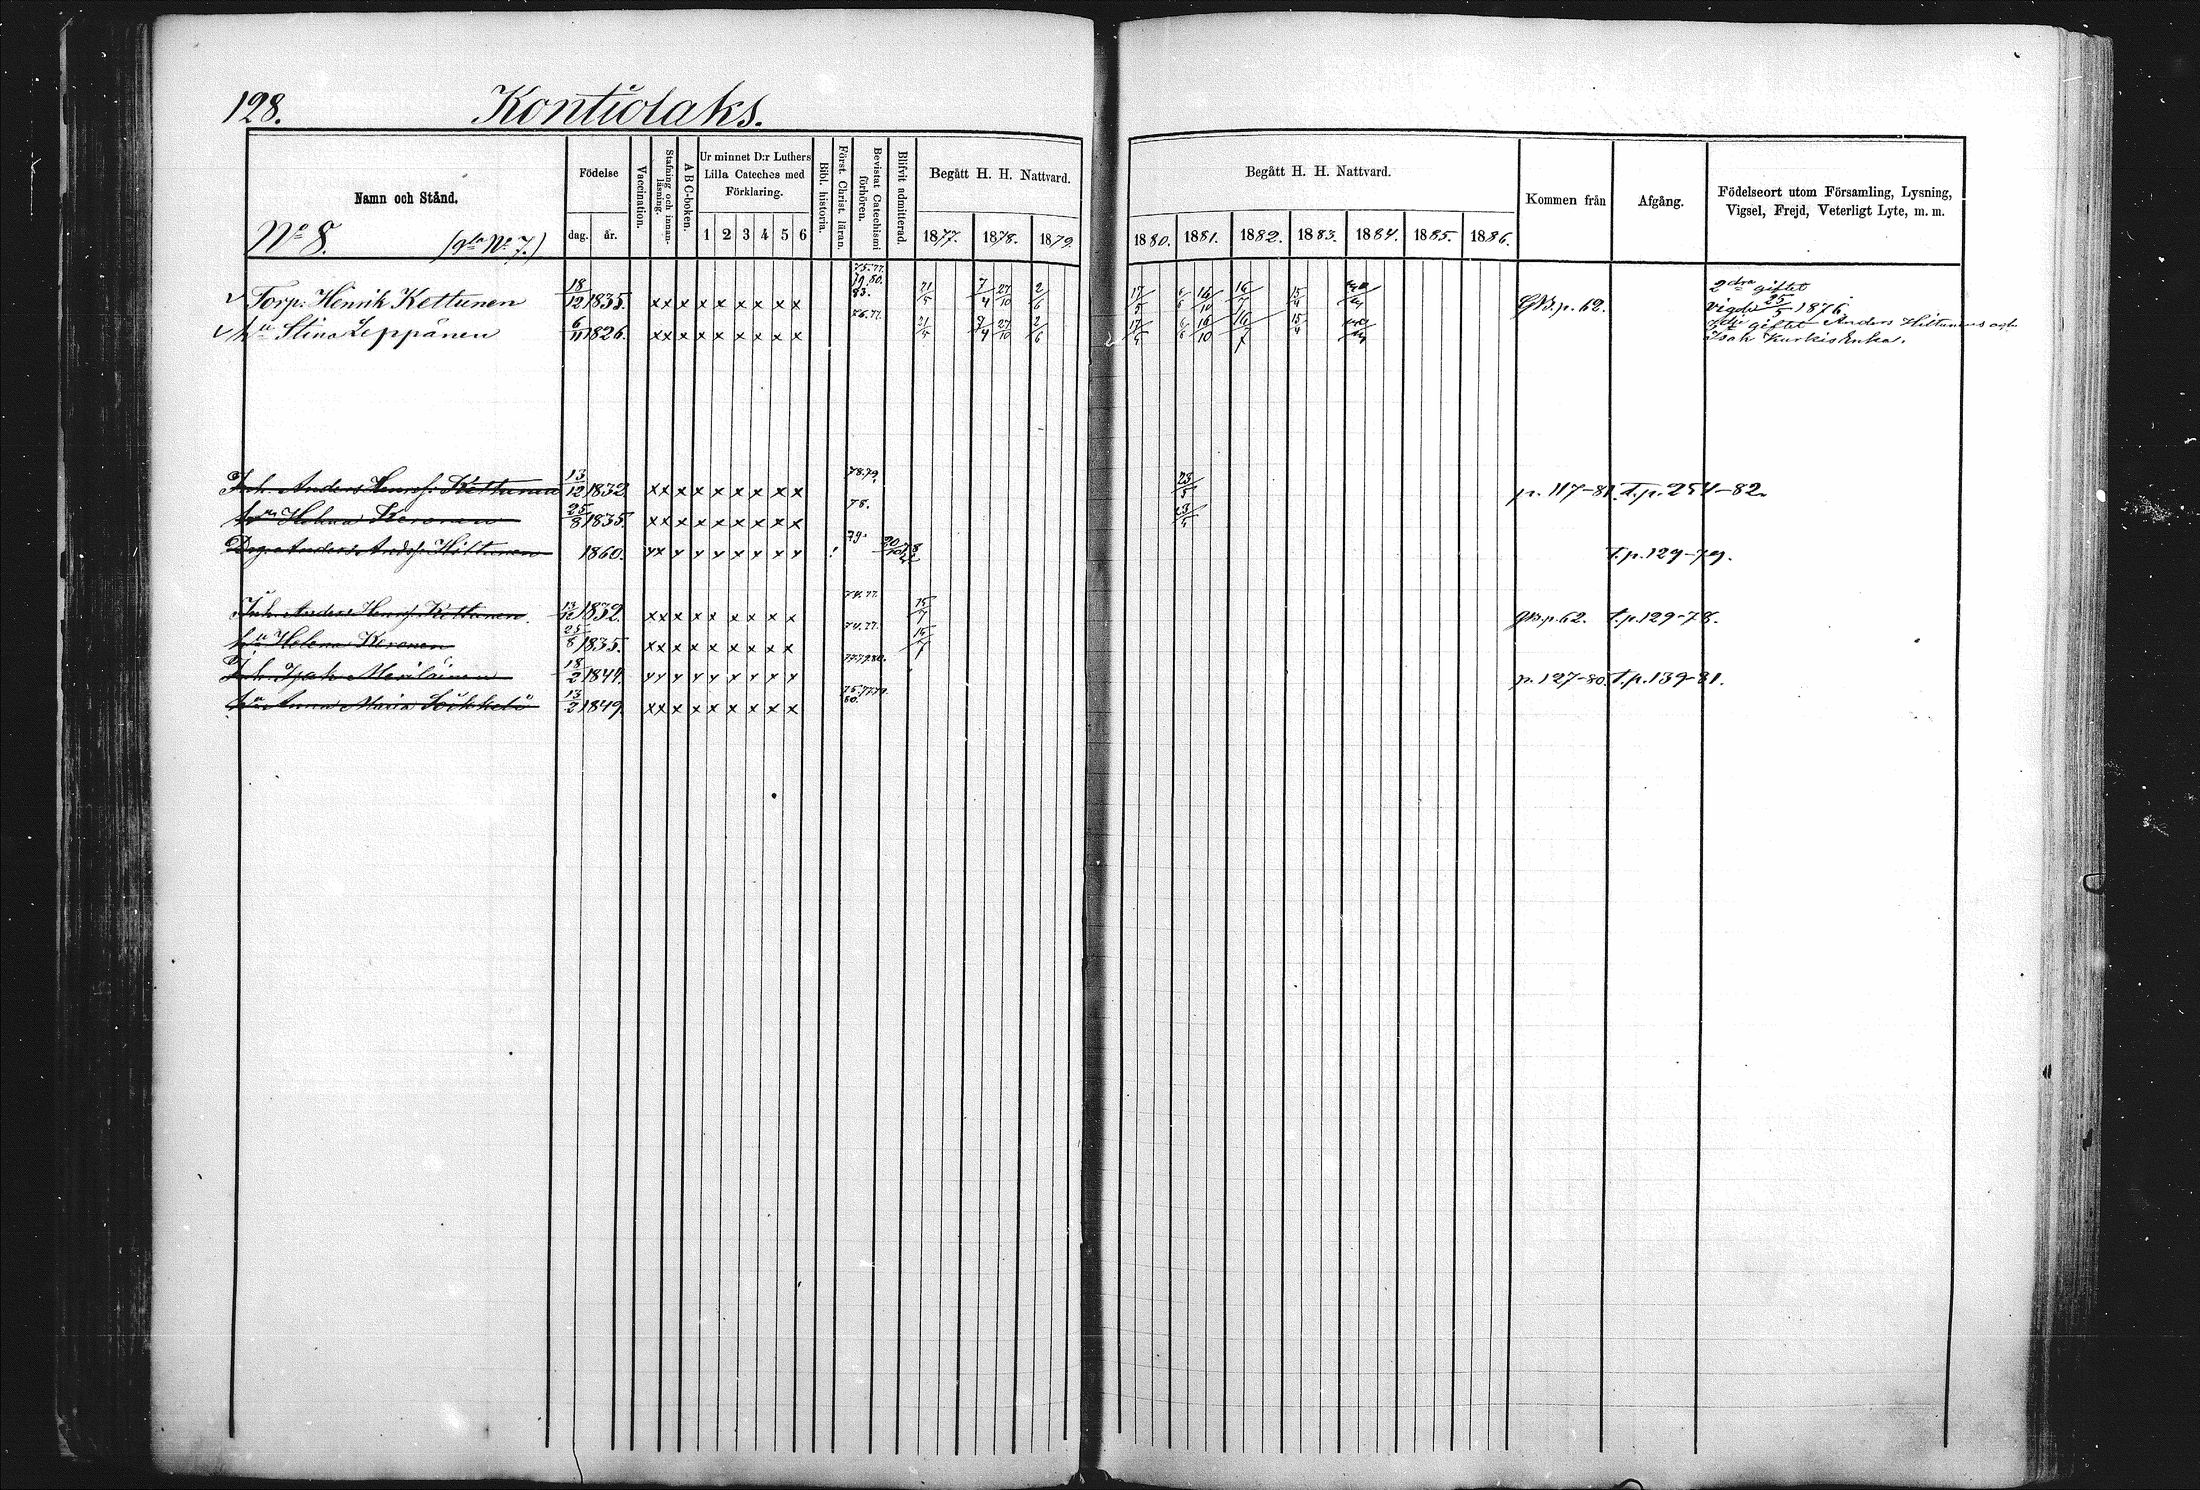 128. Kontiolaks.
Namn och Stånd.
No 8. (gla No 7.)
Födelse
dag. år.
Vaccination.
Stafning och innan-
läsning.
A B C-boken.
Ur minnet D:r Luthers
Lilla Cateches med
Förklaring.
1 2 3 4 5 6
Bibl. historia.
Först. Christ. läran.
Bevistat Catechismi
förhören.
Blifvit admitterad.
Begått H. H. Nattvard.
1877. 1878. 1879.
Begått H. H. Nattvard.
1880. 1881. 1882. 1883. 1884. 1885. 1886.
Kommen från
Afgång.
Födelseort utom Församling, Lysning,
Vigsel, Frejd, Veterligt Lyte, m. m.
Torp: Henrik Kettunen 18/12 1835. x x x x x x x x x 75.77. 79.80. 83. 21/5 7/4 27/10 2/6 17/5 6/6 16/10 16/7 15/4 GB.p.62. 2dra giftet vigde 25/5 1876.
hu Stina Leppänen 6/11 1826. x x x x x x x x x 76.77. 21/5 7/4 27/10 2/6 17/5 6/6 16/10 16/7 15/4 giftet Anders Hiltunens och
Isak Kurkis Enka.
Inh. Anders Henrsf: Kettunen 13/12 1832 x x x x x x x x x 78.79. 23/5 p.117-81. T.p.254-82.
hu Helena Keronen 25/8 1835. x x x x x x x x x 78. 23/5
Anders Andsf: Hiltunen 1860. x x x x x x x x x 79. T.p.129-79.
Inh. Anders Henrsf: Kettunen. 13/12 1832. x x x x x x x x x 74.77. 15/7 GB.p.62. T.p.129-78.
hu Helena Keronen 25/8 1835. x x x x x x x x x 74.77. 15/7
Inh. Isak Meriläinen 18/2 1844. x x x x x x x x x 77.79.80. p.127-80. T.p.139-81.
hu Anna Maria Sikkelö 13/2 1849. x x x x x x x x x 75.77.79. 80.